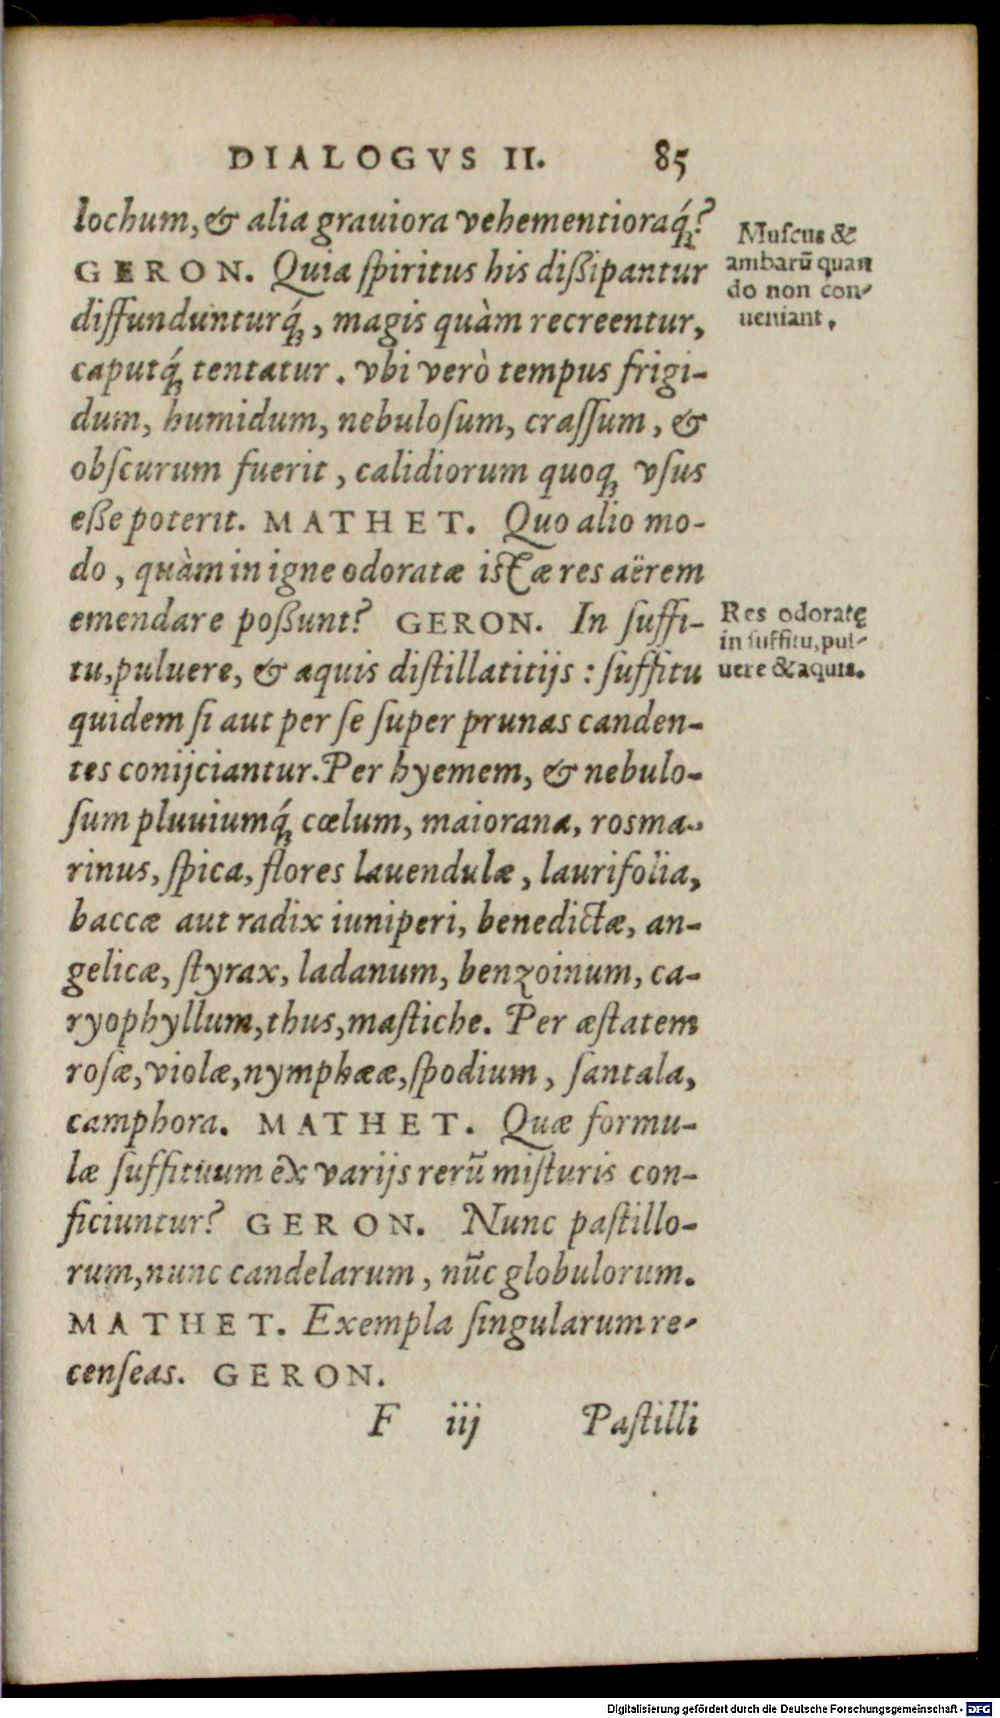 DIALOGVS II. 85
lochum, & alia grauiora vehementioraq́ꝫ?
GERON. Quia ſpiritus his dißipantur
diffundunturq́ꝫ, magis quàm recreentur,
caputq́ꝫ tentatur. vbi verò tempus frigi-
dum, humidum, nebuloſum, craſſum, &
obſcurum fuerit, calidiorum quoqꝫ vſus
eße poterit. MATHET. Quo alio mo-
do, quàm in igne odoratæ iſtæ res aërem
emendare poßunt? GERON. In ſuffi-
tu, puluere, & aquis diſtillatitijs: ſuffitu
quidem ſi aut per ſe ſuper prunas canden-
tes conijciantur. Per hyemem, & nebulo-
ſum pluuiumq́ꝫ cœlum, maiorana, rosma-
rinus, ſpica, flores lauendulæ, laurifolia,
baccæ aut radix iuniperi, benedictæ, an-
gelicæ, ſtyrax, ladanum, benzoinum, ca-
ryophyllum, thus, maſtiche. Per æſtatem
roſæ, violæ, nymphææ, ſpodium, ſantala,
camphora. MATHET. Quæ formu-
læ ſuffituum ex varijs rerū miſturis con-
ficiuntur? GERON. Nunc paſtillo-
rum, nunc candelarum, nūc globulorum.
MATHET. Exempla ſingularum re-
cenſeas. GERON.
F iij Paſtilli
Muſcus &
ambarū quan
do non con-
ueniant.
Res odoratę
in ſuffitu, pul-
uere & aquis.
Digitalisierung gefördert durch die Deutsche Forschungsgemeinschaft - DFG